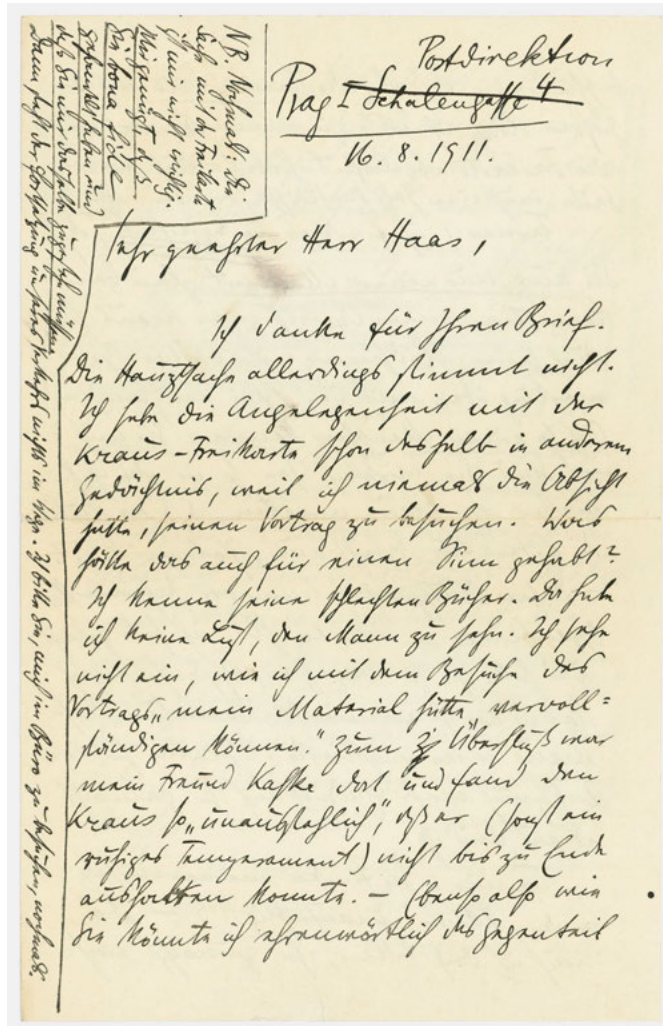 Postdirektion
Prag I Schalengasse 4
16. 8. 1911.
Sehr geehrter Herr Haas,
Ich danke für Ihren Brief.
Die Hauptsache allerdings stimmt nicht.
Ich habe die Angelegenheit mit der
Kraus-Freikarte schon deshalb in anderem
Gedächtnis, weil ich niemals die Absicht
hatte, seinen Vortrag zu besuchen. Was
hätte das auch für einen Sinn gehabt?
Ich kenne seine schlechten Bücher. Da habe
ich keine Lust, den Mann zu sehn. Ich sehe
nicht ein, wie ich mit dem Besuche des
Vortrags „mein Material hätte vervoll=
ständigen können." Zum Überfluß war
mein Freund Kafka dort und fand den
Kraus so „unausstehlich", daß er (sonst ein
ruhiges Temperament) nicht bis zu Ende
aushalten konnte. – Ebenso also wie
Sie könnte ich ehrenwörtlich das Gegenteil
NB. Nochmal: Die
Sache mit der Freikarte
ist mir nicht wichtig.
Mir genügt, daß
Sie bona fide
gehandelt haben und
daß Sie mir dasselbe zugestehn müssen.
Dann steht der Fortsetzung unseres Verkehrs nichts im Wege. Ich bitte Sie, mich im Büro zu besuchen, nochmals.